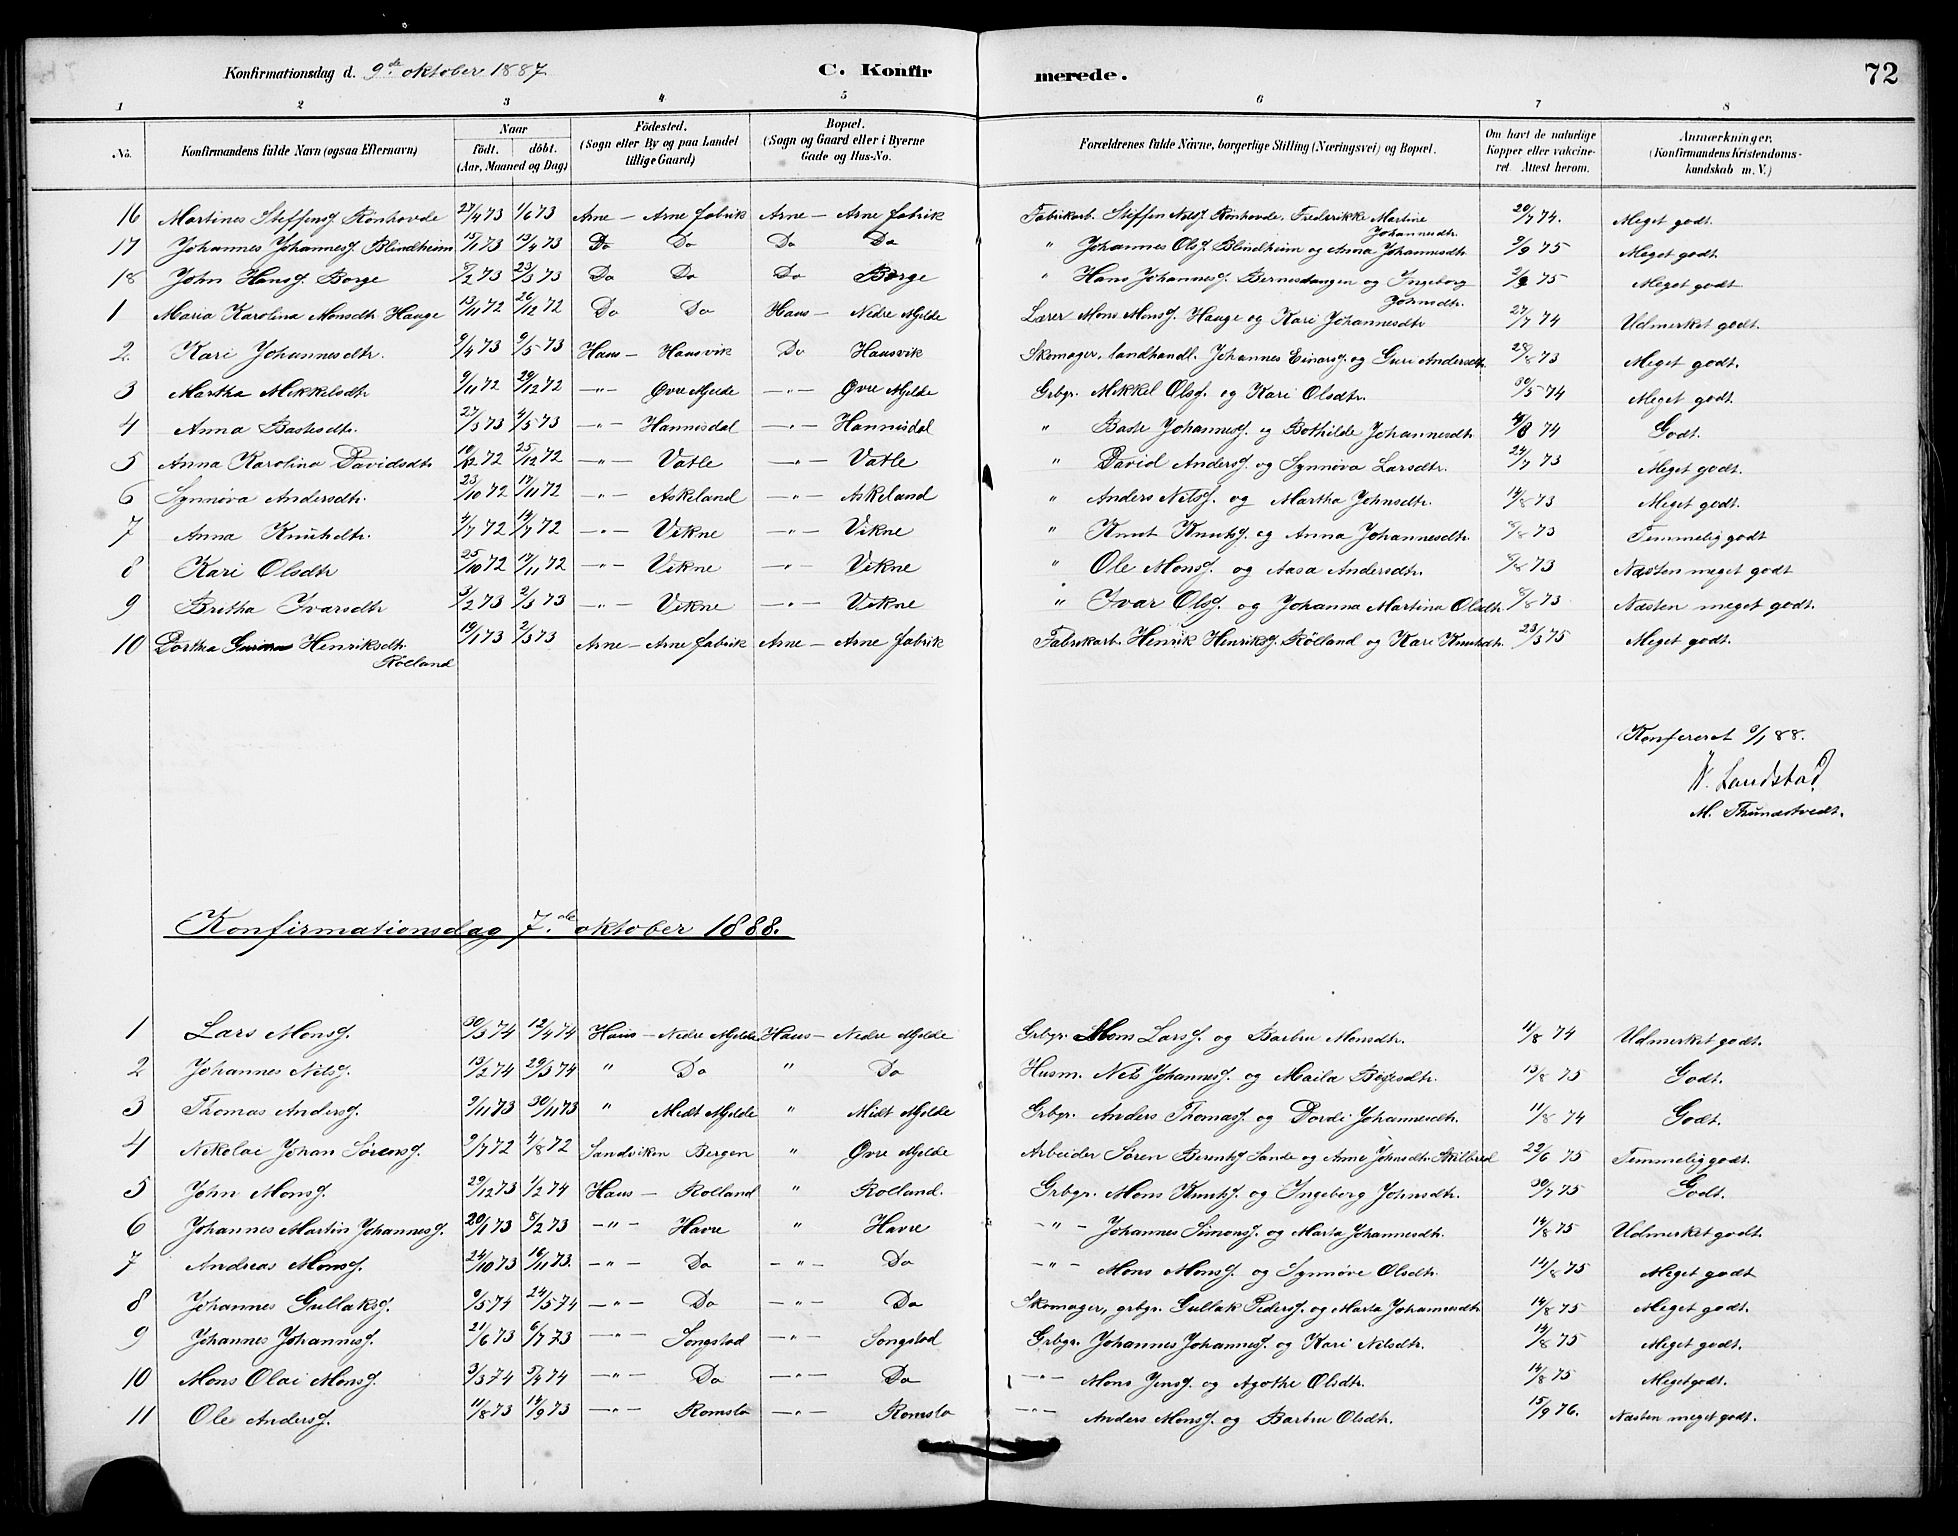 Konfirmationsdag d. 9de oktober 1887 C. Konfir merede. 72
1 2 3 4 5 6 7 8
No. Konfirmandens fulde Navn (ogsaa Efternavn) Naar födt. döbt. (Aar, Maaned og Dag) Födested. (Sogn eller By og paa Landet tillige Gaard) Bopæl. (Sogn og Gaard eller i Byerne Gade og Hus-No. Forældrenes fulde Navne, borgerlige Stilling (Næringsvei) og Bopæl. Om havt de naturlige Kopper eller vakcineret. Attest herom. Anmærkninger, (Konfirmandens Kristendomskundskab m. V.)
16 Martines Steffens. Rönhovde 27/4 73 1/6 73 Arne – Arne fabrik Arne – Arne fabrik Fabrikarb. Steffen Nels. Rönhovde, Frederikke Martine Johannesdtr 20/7 74. Meget godt.
17 Johannes Johannes. Blindheim 15/1 73 13/4 73 Do Do Do Do " Johannes Ols. Blindheim og Anna Johannesdtr 9/9 75 Meget godt.
18 John Hans. Borge 8/2 73 23/3 73 Do Do Do Borge " Hans Johannes. Bernesdangen og Ingeborg Johnsdtr. 2/9 75 Meget godt
1 Maria Karolina Monsdtr Hauge 13/11 72 26/12 72 Do Do Haus – Nedre Mjelde Lærer Mons Mons. Hauge og Kari Johannesdtr 27/7 74 Udmerket godt.
2. Kari Johannesdtr. 9/4 73 9/5 73 Haus – Hausvik Do Hausvik Skomager, landhandl. Johannes Einars. og Guri Andersdtr 28/8 73 Meget godt.
3 Martha Mikkelsdtr 9/11 72 29/12 72 –"– Øvre Mjelde –"– Øvre Mjelde Grbgr. Mikkel Ols. og Kari Olsdtr. 30/5 74 Meget godt.
4 Anna Bastesdtr. 27/3 73 4/5 73 –"– Hannisdal –"– Hannisdal " Baste Johannes. og Bothilde Johannesdtr 74 Godt.
5 Anna Karolina Davidsdtr 10/12 72 25/12 72 –"– Vatle –"– Vatle " David Anders. og Synnøva Larsdtr. 24/7 73 Meget godt.
6 Synnøva Andersdtr. 23/10 72 17/11 72 –"– Askeland –"– Askeland " Anders Nels. og Martha Johnsdtr. 14/8 73 Meget godt.
7 Anna Knutsdtr. 4/7 72 14/7 72 –"– Vikne –"– Vikne " Knut Knuts. og Anna Johannesdtr. 8/8 73 Temmelig godt
8 Kari Olsdtr 25/10 72 17/11 72 –"– Vikne –"– Vikne " Ole Mons. og Aasa Andersdtr. 8/8 73 Næsten meget godt
9 Britha Ivarsdtr 3/2 73 2/3 73 –"– Vikne –"– Vikne " Ivar Ols. og Johanna Martina Olsdtr. 8/8 73 Næsten meget godt.
10 Dortha Henriksdtr. Rölland 19/1 73 2/3 73 Arne – Arne fabrik Arne – Arne fabrik Fabrikarb. Henrik Henriks. Rölland og Kari Knutsdtr. 23/3 75 Meget godt.
Konfereret 9/1 88.
Landstad
M. Thundstvedt.
Konfirmationsdag 7.de oktober 1888.
1 Lars Mons. 30/3 74 12/4 74 Haus – Nedre Mjelde Haus – Nedre Mjelde Grbgr. Mons Lars. og Barbru Monsdtr. 11/8 74 Udmerket godt.
2 Johannes Nils. 13/2 74 29/3 74 " Do " Do Husm. Nels Johannes. og Maila Børesdtr. 13/8 75 Godt.
3 Thomas Anders. 9/11 73 30/11 73 " Midt Mjelde " Midt Mjelde Grbgr. Anders Thomas. og Dordi Johannesdtr. 11/8 74 Godt.
4 Nikolai Johan Sörens. 9/7 72 4/8 72 Sandviken Bergen " Øvre Mjelde Arbeider Sören Berents. Sande og Anne Johnsdtr. Skilbred 22/6 75 Temmelig godt.
5 John Mons. 29/12 73 1/2 74 Haus – Rolland " Rolland. Grbgr. Mons Knuts. og Ingeborg Johnsdtr. 30/7 75 Godt.
6 Johannes Martin Johannes. 20/1 73 8/2 73 –"– Havre " Havre –"– Johannes Simons. og Marta Johannesdtr. 14/8 75 Udmerket godt.
7 Andreas Mons. 24/10 73 16/11 73. –"– Do –"– Do –"– Mons Mons. og Synnöve Olsdtr. 14/8 75 Meget godt
8 Johannes Gullaks. 9/5 74 24/5 74 –"– Do –"– Do Skomager, grbgr. Gullak Peders. og Marta Johannesdtr 14/8 75 Meget godt.
9 Johannes Johannes. 21/6 73 6/7 73 –"– Songstad –"– Songstad Grbgr. Johannes Johannes. og Kari Nilsdtr. 14/8 75 Meget godt.
10 Mons Olai Mons. 3/3 74 5/4 74 –"– Do –"– Do –"– Mons Jens. og Agothe Olsdtr. 14/8 75 Meget godt.
11 Ole Anders. 11/8 73 14/9 73 –"– Romslo –"– Romslo –"– Anders Mons. og Barbru Olsdtr. 15/9 76. Næsten meget godt.